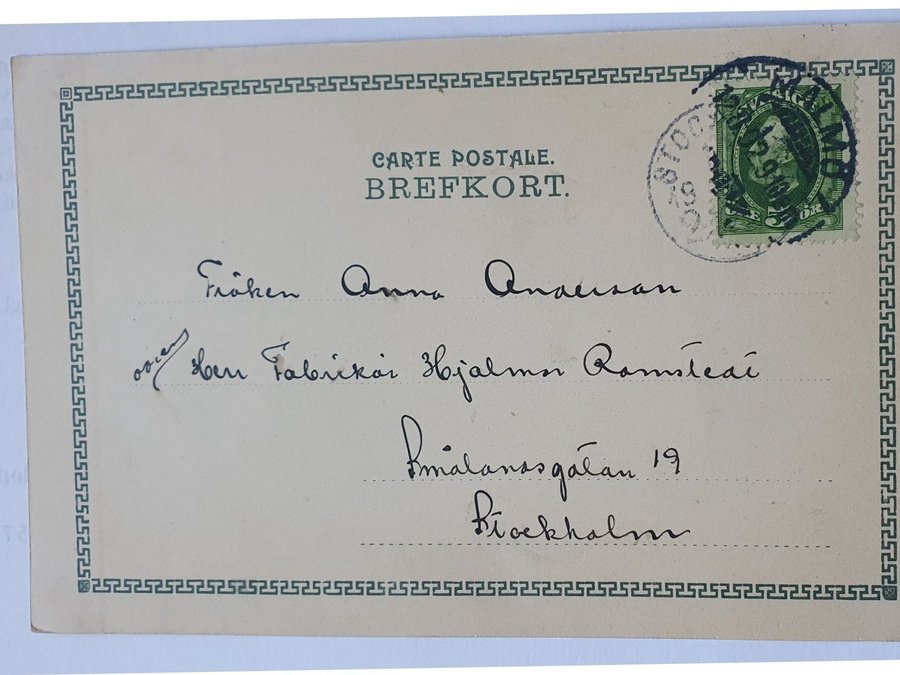 CARTE POSTALE.
BREFKORT.
MALMÖ
STOC
Fröken Anna Anderson
Herr Fabrikör Hjalmar Ramstedt
Smålandsgatan 19
Stockholm